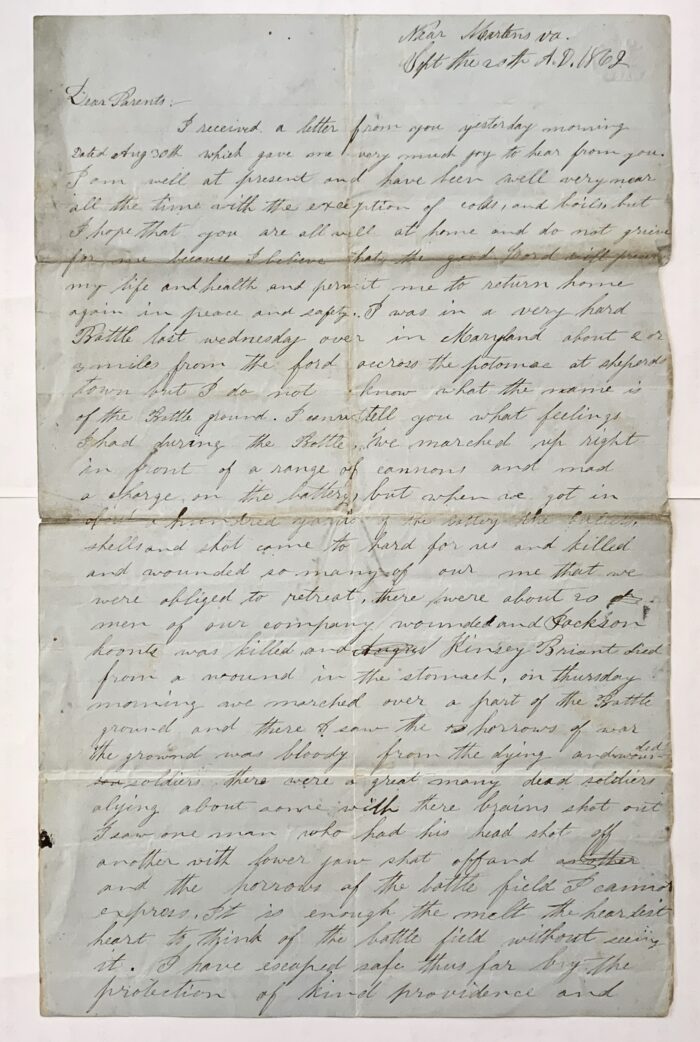 Near Martens va.
Sept the 20th A.D. 1862
Dear Parents:-
I received a letter from you yesterday morning
Dated Aug 30th which gave me very much joy to hear from you.
I am well at present and have been well very near
all the time with the exception of colds, and boils, but
I hope that you are all well at home and do not greive
for me because I believe that the good Lord will
my life and health and permit me to return home
again in peace and safety. I was in a very hard
Battle last wednesday over in Maryland about 2 or
3 miles from the ford accross the potomac at sheperds
town but I do not know what the name is
of the Battle ground. I tell you what feelings
I had during the Battle, we marched up right
in front of a range of cannons and mad
a charge on the battery, but when we got in
about a hundred yards of the battery the
shells and shot came to hard for us and killed
and wounded so many of our me that we
were obliged to retreat, there were about 20
men of our company wounded and Jackson
koonts was killed and Kinsey Briant died
from a wound in the stomach, on thursday
morning we marched over a part of the Battle
ground and there I saw the horrows of war
the grownd was bloody from the dying and woundded
soldiers there were a great many dead soldiers
alying about some with there brains shot out
I saw one man who had his head shot off
another with lower jaw shot off and another
and the horrows of the battle field I cannot
express. It is enough the melt the heardest
heart to think of the battle field without seeing
it. I have escaped safe thus far by the
protection of kind providence and